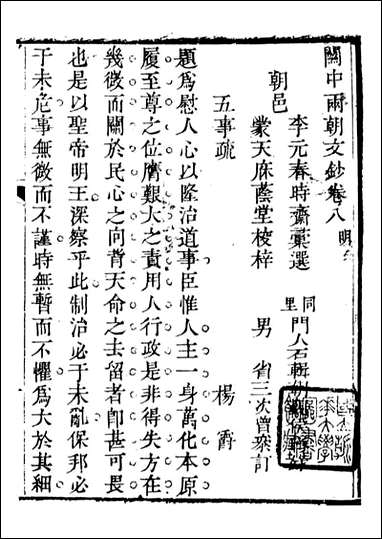 關中兩朝文鈔卷八 明
朝邑 李元春時齋彙選 同里 門人石輯
蒙天庥蔭堂校梓 男 省三次曾來訂
五事疏 楊爵
題爲慰人心以隆治道事臣惟人主一身萬化本原
履至尊之位膺艱大之責用人行政是非得失方在
幾微而關於民心之向背天命之去留者卽甚可畏
也是以聖帝明王深察乎此制治必于未亂保邦必
于未危事無微而不謹時無暫而不懼爲大於其細